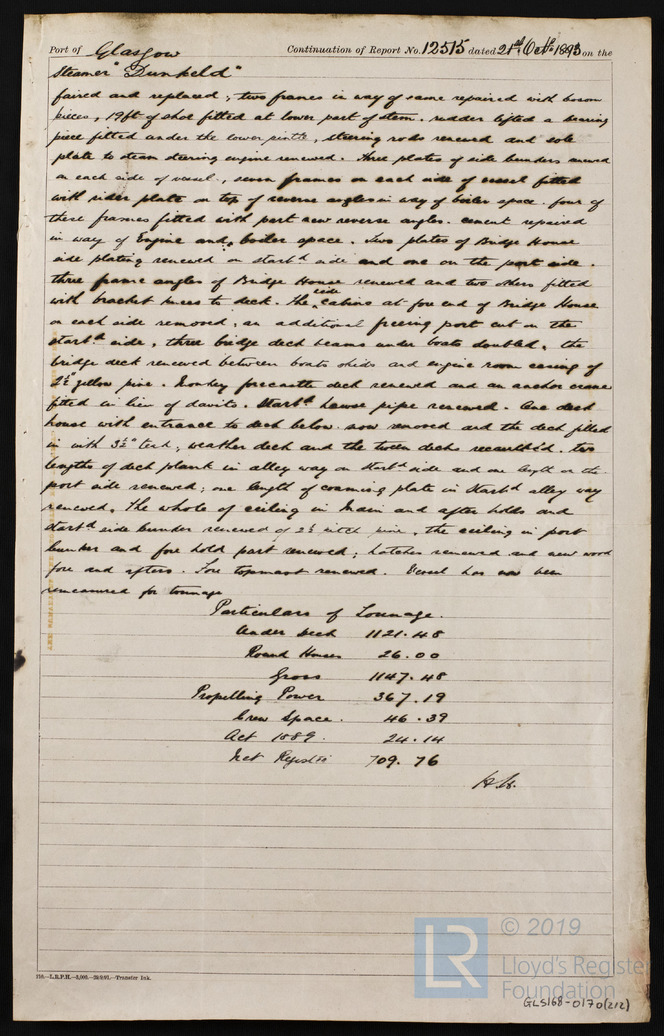 Port of Glasgow Continuation of Report No. 12515 dated 21st Octr 1893 on the
Steamer "Dunkeld"
faired and replaced; two frames in way of same repaired with bosom
pieces, 19ft of shoe fitted at lower part of stem. rudder lifted a bearing
piece fitted under the lower pintle, steering rods renewed and sole
plate to steam steering engine renewed. three plates of side bunkers renewed
on each side of vessel, seven frames on each side of vessel fitted
with rider plate on top of reverse angles in way of boiler space. four of
these frames fitted with part new reverse angles. cement repaired
in way of Engine and boiler space. Two plates of Bridge House
side plating renewed on starbd side and one on the port side.
three frame angles of Bridge House renewed and two others fitted
with bracket knees to deck. The side cabins at fore end of Bridge House
on each side removed, an additional freeing port cut on the
starbd side, three bridge deck beams under boats doubled, the
bridge deck renewed between boats skids and engine room casing of
2½" yellow pine. Monkey forecastle deck renewed and an anchor crane
fitted in lieu of davits. Starbd hawse pipe renewed. One deck
house with entrance to deck below now removed and the deck filled
in with 3½" teak, weather deck and the tween decks recaulk'd. two
lengths of deck plank in alley way on starbd side and one length on the
port side renewed; one length of coaming plate in starbd alley way
renewed. The whole of ceiling in main and after holds and
starbd side bunker renewed of 2½ pitch pine, the ceiling in port
bunker and fore hold part renewed; hatches renewed and new wood
fore and afters. Fore topmast renewed. Vessel has now been
remeasured for tonnage
Particulars of Tonnage.
Under Deck 1121.48
Round House 26.00
Gross 1147.48
Propelling Power 367.19
Crew Space. 46.39
Act 1889. 24.14
Net Register 709.76
© 2019
LR
Lloyd's Register
Foundation
GLS168-0170(212)